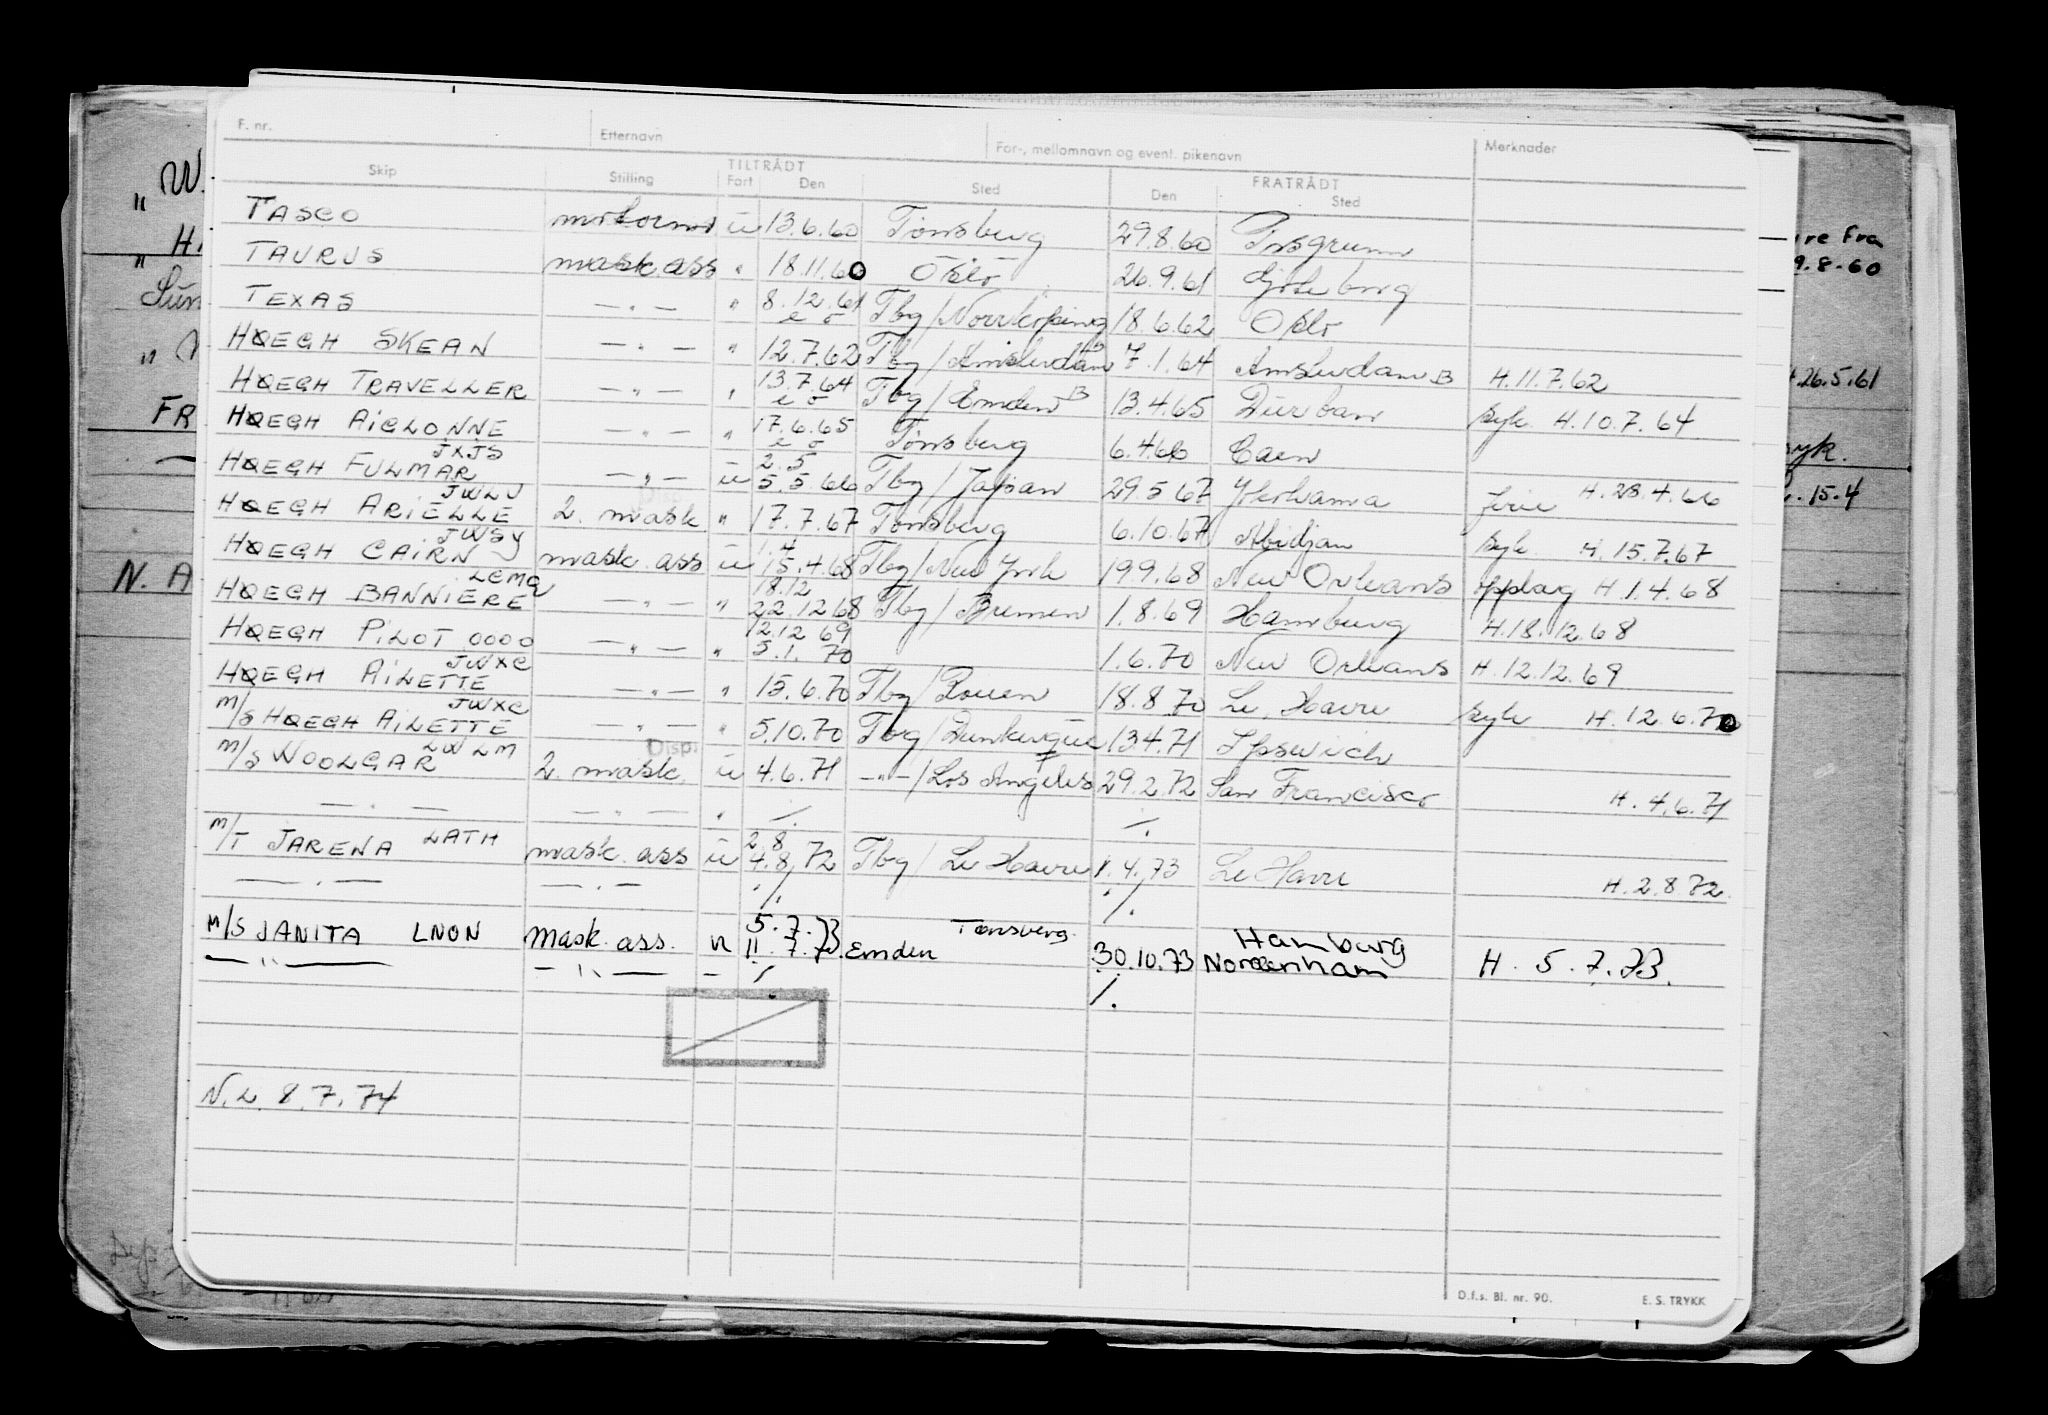 F. nr. Etternavn For-, mellomnavn og event. pikenavn Merknader
TILTRÅDT FRATRÅDT
Skip Stilling Fart Den Sted Den Sted
TASCO u 13.6.60 Tønsberg 29.8.60
TAURUS mask ass " 18.11.60 Oslo 26.9.61 Gøteborg
TEXAS — " — " 8.12.61 Tbg/Norrköping 18.6.62 Oslo
HØEGH SKEAN — " — " 12.7.62 Tbg/Amsterdam 7.1.64 Amsterdam B H.11.7.62
HØEGH TRAVELLER — " — " 13.7.64 Tbg/Emden B 13.4.65 Durban syk H.10.7.64
HØEGH AIGLONNE — " — " 17.6.65 Tønsberg 6.4.66 Caen
JXJS
HØEGH FULMAR — " — u 2.5 5.5.66 Tbg/Japan 29.5.67 Yokohama ferie H.28.4.66
JWLJ Disp.
HØEGH ARIELLE 2. mask " 17.7.67 Tønsberg 6.10.67 Abidjan syk H.15.7.67
JWSY
HØEGH CAIRN mask ass u 1.4 15.4.68 Tbg/New York 19.9.68 New Orleans opplag H.1.4.68
LEMQ
HØEGH BANNIERE — " — " 18.12 22.12.68 Tbg/Bremen 1.8.69 Hamburg H.18.12.68
HØEGH PILOT OOOO — " — " 12.12 69 5.1.70 1.6.70 New Orleans H.12.12.69
JWXC
HØEGH AILETTE — " — " 15.6.70 Tbg/Rouen 18.8.70 Le Havre syk H.12.6.70
JWXC
M/S HØEGH AILETTE — " — " 5.10.70 Tbg/Dunkerque 13.4.71 Ipswich
LWLM Disp.
M/S WOOLGAR 2. mask. u 4.6.71 —"—/Los Angeles 29.2.72 San Francisco H.4.6.71
— " — — " — " ./. ./.
M/T JARENA LATH mask. ass u 2.8 4.8.72 Tbg/Le Havre 1.4.73 Le Havre H.2.8.72
— " — — " — ./. ./.
M/S JANITA LNON Mask. ass. u 5.7.73 11.7.73. Emden Tønsberg 30.10.73 Hamburg Nordenham H. 5.7.73.
— " — — " — — ./. ./.
N.L. 8.7.74
D.f.s. Bl. nr. 90. E. S. TRYKK
"W.
H.
FR
N. A
re fra
9.8-60
26.5.61
syk.
15.4